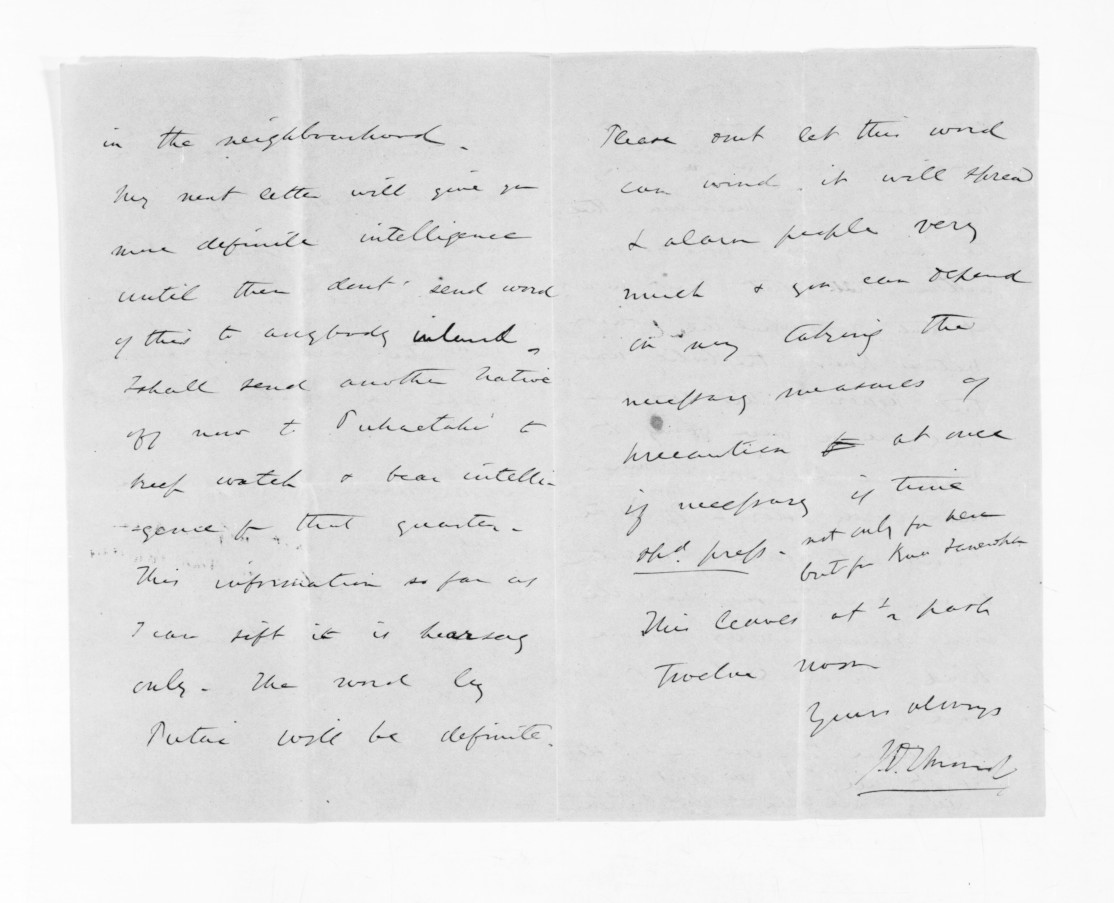 in the neighbourhood.
My next letter will give you
more definite intelligence
until then dont send word
of this to anybody inland.
I shall send another Native
off now to Puhaetahi to
keep watch & bear intelli-
-gence to that quarter.
This information so far as
I can sift it is hearsay
only. The word by
Putai will be definite.
Please dont let this word
can wind. it will spread
& alarm people very
much & you can depend
on my taking the
necessary measures of
precaution at once
if necessary if time
shd. press. not only for here
but for
This leaves at ½ past
twelve noon
Yours always